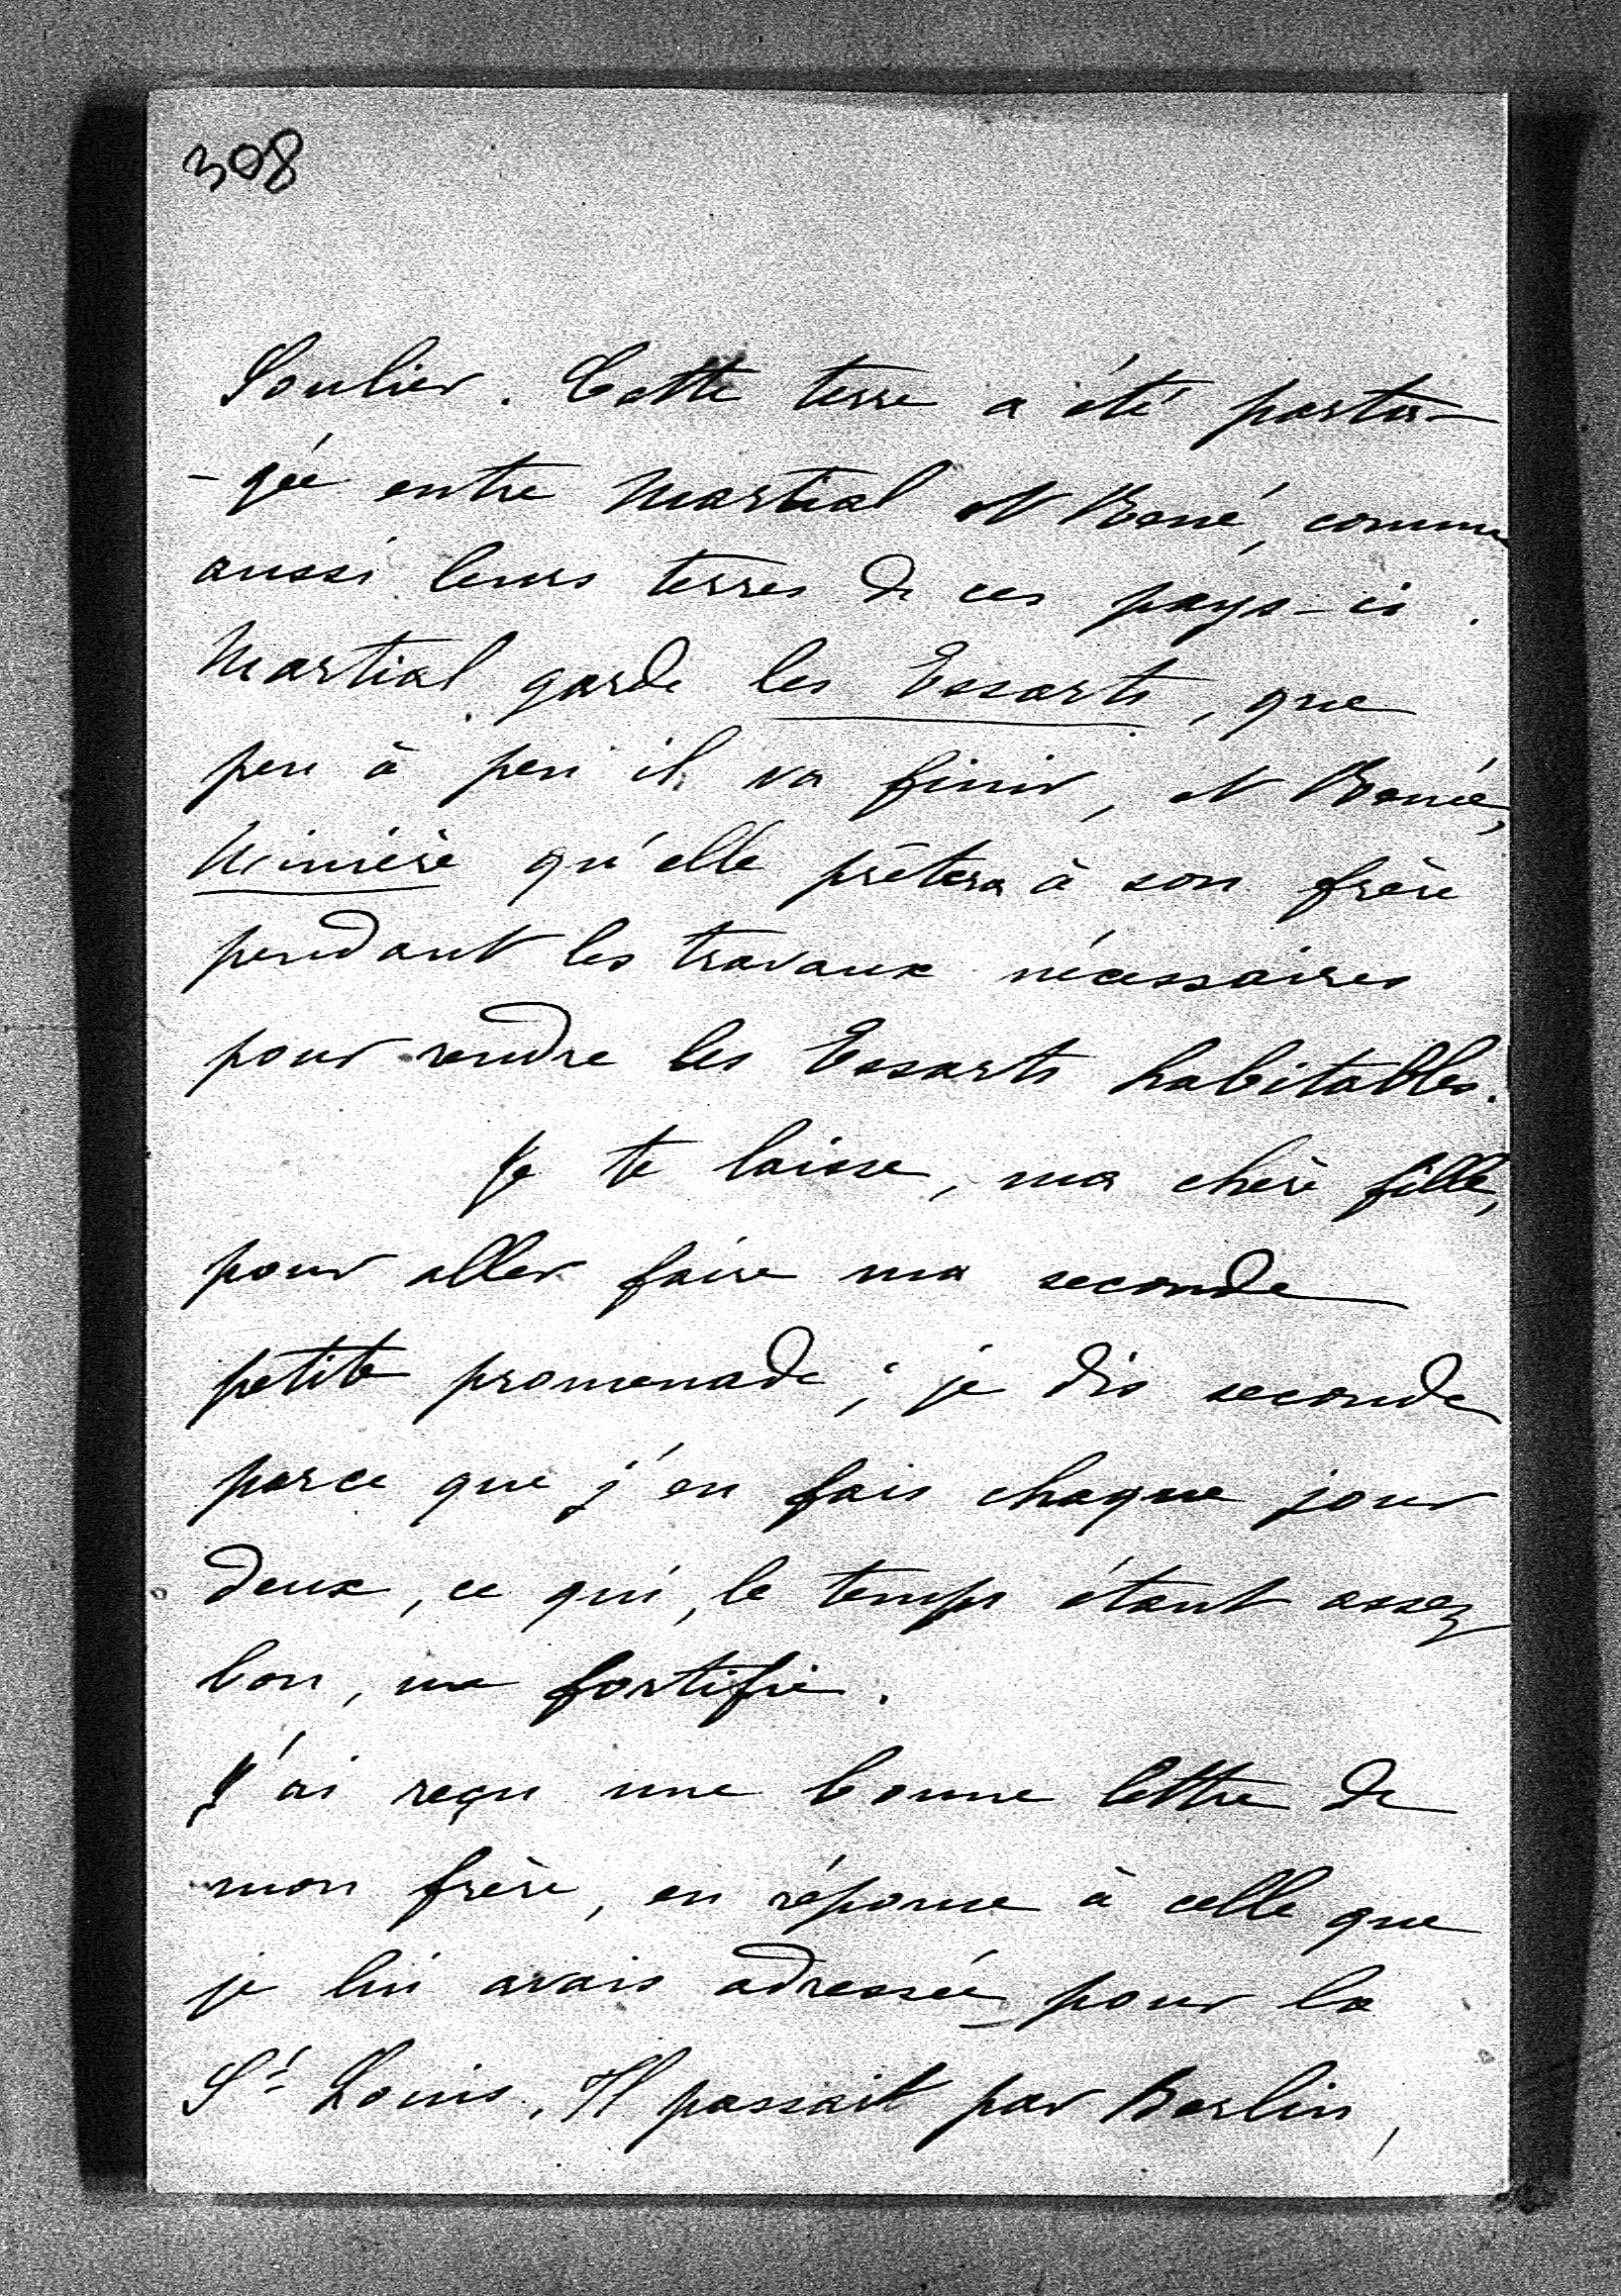 308
Soulier. Cette terre a été parta-
-gée entre Martial et René, comme
aussi leurs terres de ces pays-ci.
Martial garde les Essarts, que
peu à peu il va finir, et Renée,
Minière qu'elle prêtera à son frère
pendant les travaux nécessaires
pour rendre les Essarts habitables.
Je te laisse, ma chère fille,
pour aller faire ma seconde
petite promenade ; je dis seconde
parce que j'en fais chaque jour
deux, ce qui, le temps étant assez
bon, me fortifie.
J'ai reçu une bonne lettre de
mon frère, en réponse à celle que
je lui avais adressée pour la
St Louis. Il passait par Berlin,